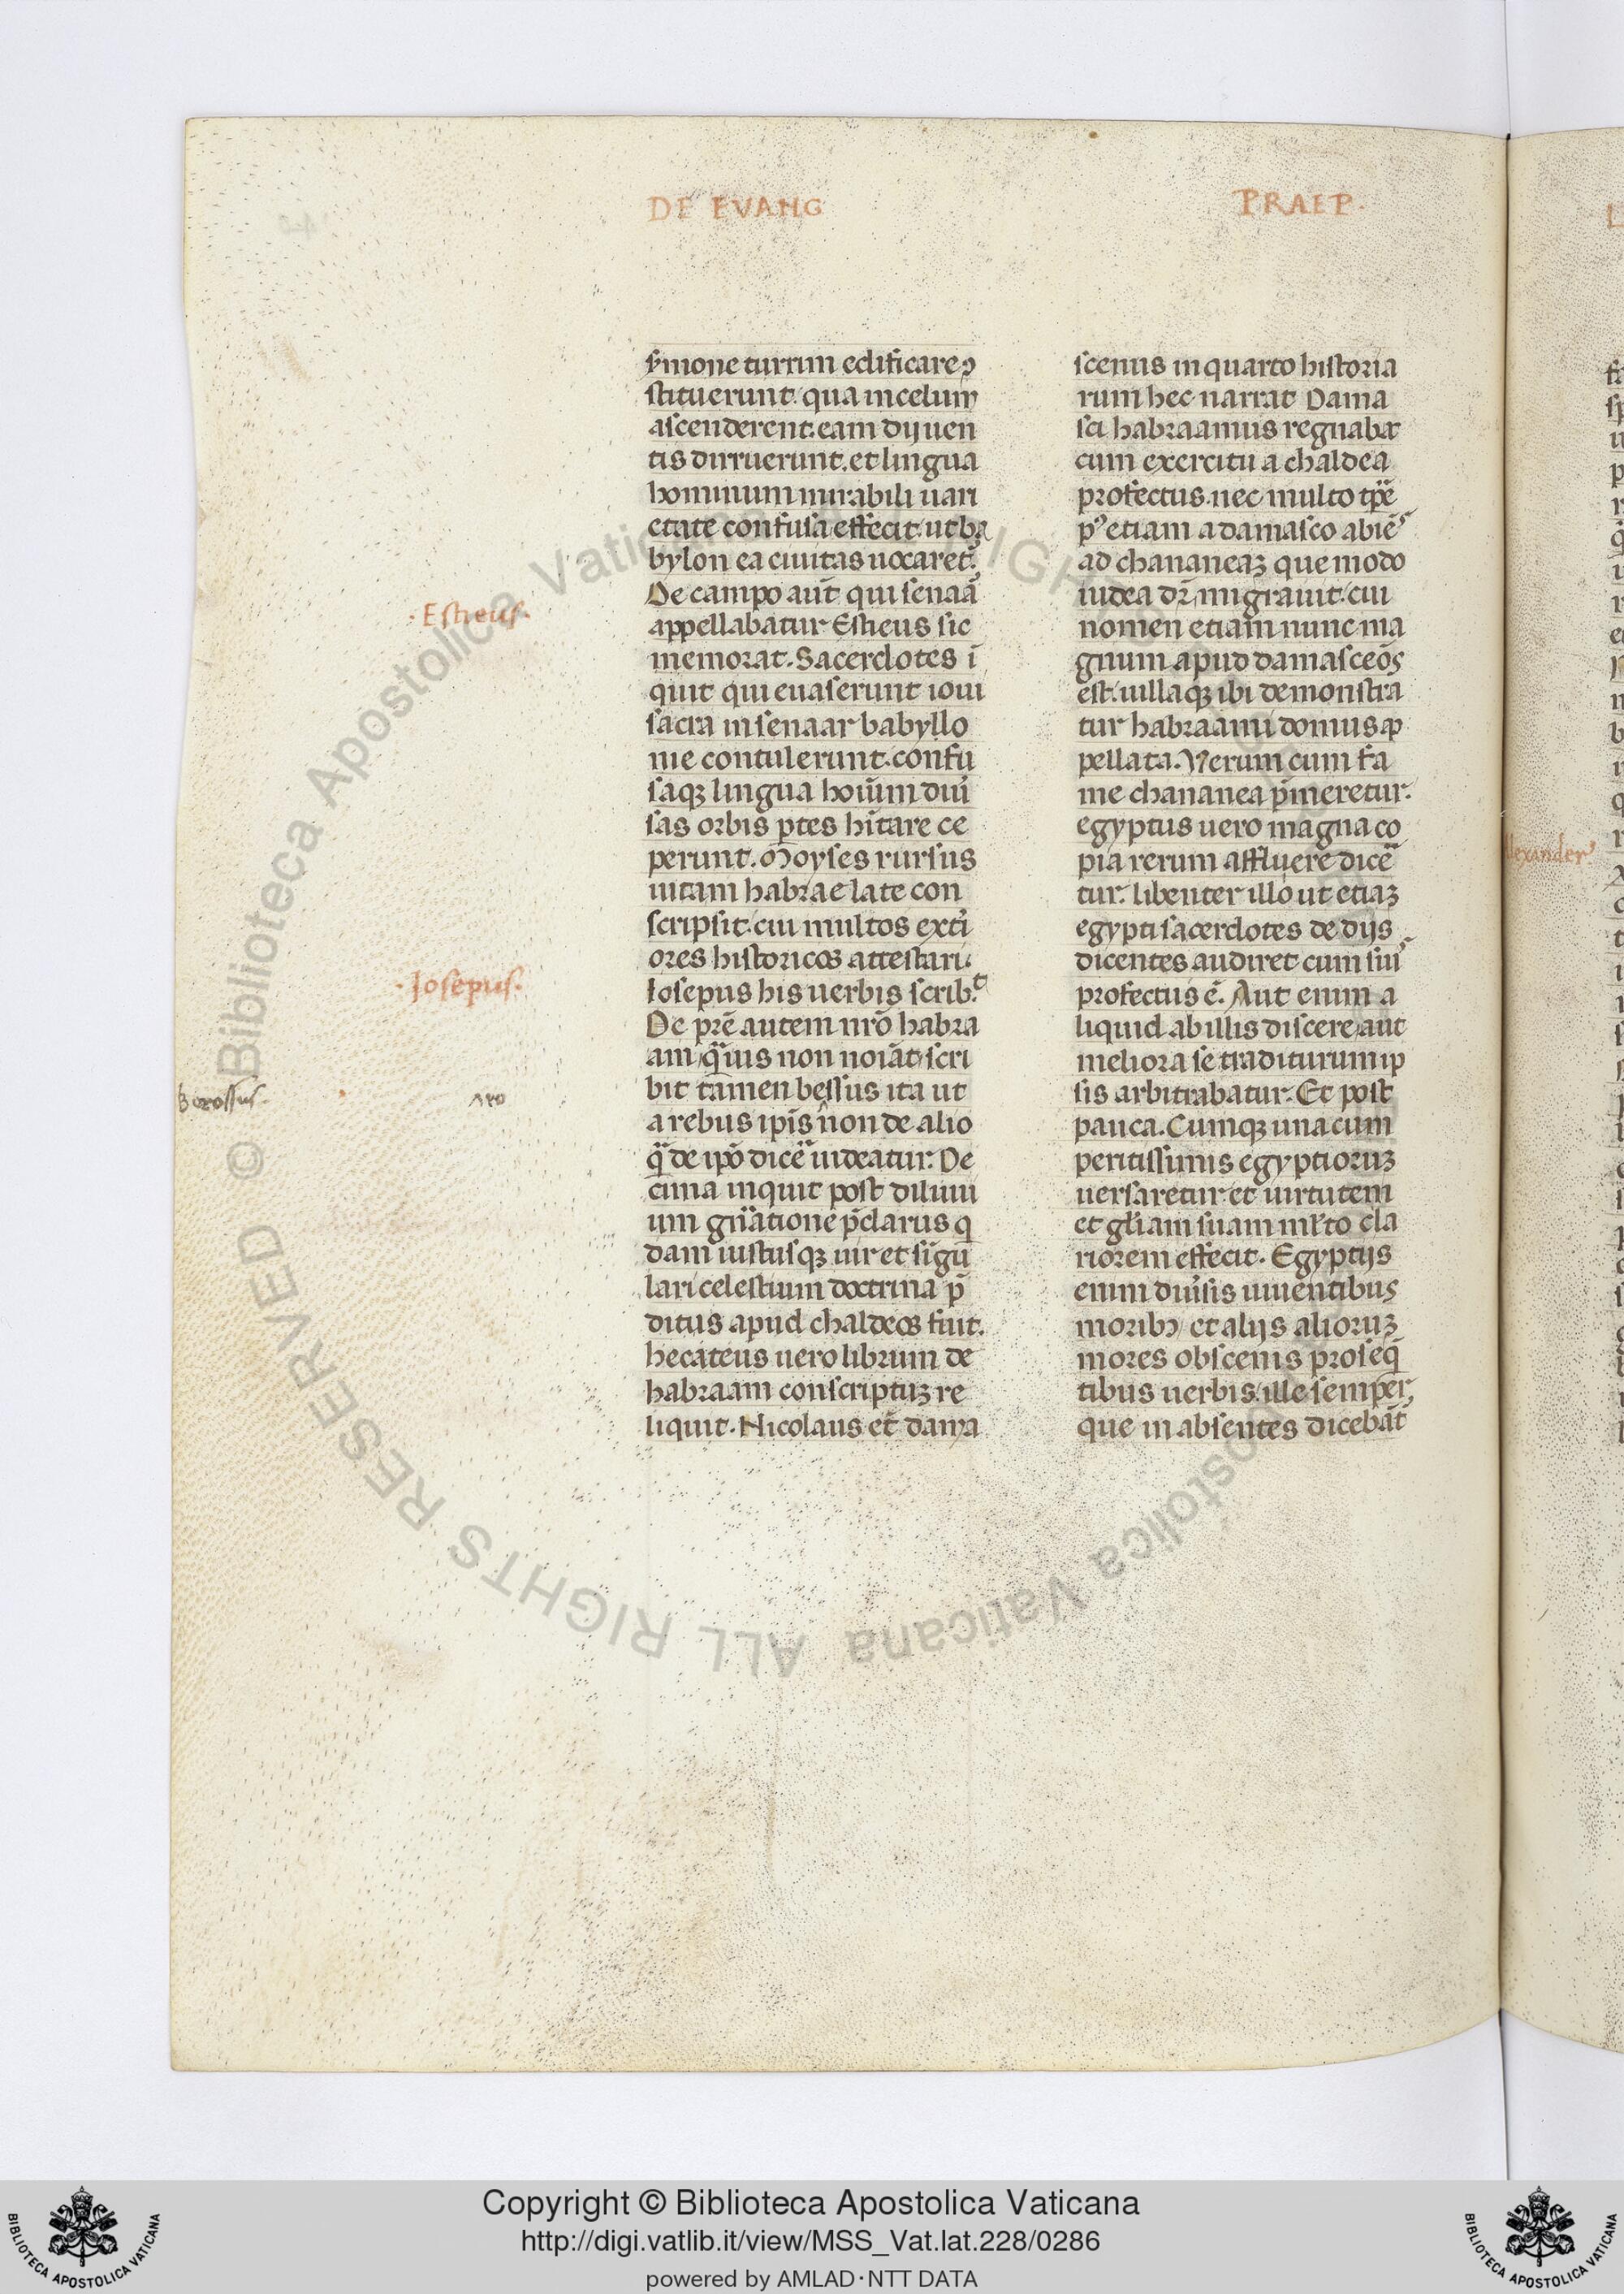 DE EVANG
PRAEP.
s̄mone turrim edificare ꝯ
stituerunt. qua in celum
ascenderent. eam dij uen
tis dirruerunt. et lingua
hominum mirabili uari
etate confusa effecit. ut ba
bylon ea ciuitas uocaret᷑.
De campo aut̄ qui senaā
·Estieus·
appellabatur Estieus sic
memorat. Sacerdotes ī
quit qui euaserunt ioui
sacra in senaar babyllo
nie contulerunt. confu
saqꝫ lingua hoīum diū
sas orbis ꝑtes hītare ce
perunt. Moyses rursus
uitam habrae late con
scripsit. cui multos exti
ores historicos attestari.
·Iosepus·
Iosepus his uerbis scrib.ᵗ
De pr̄e autem nr̄o habra
am quīus non noīat scri
Berossus·
ʌro
bit tamen bessus ita ut
a rebus ipīs non de alio
q̄ de ipo̅ dice᷑ uideatur. De
cima inquit post diluui
um gn̄atione p̄clarus q
dam iustusqꝫ uir et sigu
lari celestium doctrina p̄
ditus apud chaldeos fuit.
hecateus uero librum de
habraam conscriptuꝫ re
liquit. Nicolaus et̄ dama
scenus in quarto historia
rum hec narrat Dama
sci habraamus regnabat
cum exercitu a chaldea
profectus. nec multo tp̄e
pꝰ etiam a damasco abiēˢ
ad chananeaꝫ que modo
iudea dr̄ migrauit. cui
nomen etiam nunc ma
gnum apud damasceōs
est. uillaqꝫ ibi demonstra
tur habraami domus ap
pellata. Verum cum fa
me chananea p̄meretur.
egyptus uero magna co
pia rerum affluere dice᷑
tur. libenter illo ut etiaꝫ
egypti sacerdotes de dijs
dicentes audiret cum suiˢ
profectus ē. Aut enim a
liquid ab illis discere aut
meliora se traditurum ip
sis arbitrabatur. Et post
pauca. Cumqꝫ una cum
peritissimis egyptioruꝫ
uersaretur et uirtutem
et gl̄iam suam mr̄to cla
riorem effecit. Egyptijs
enim diūsis uiuentibus
moribꝫ et alijs alioruꝫ
mores obscenis proseq̄
tibus uerbis. ille semper
que in absentes dicebāt